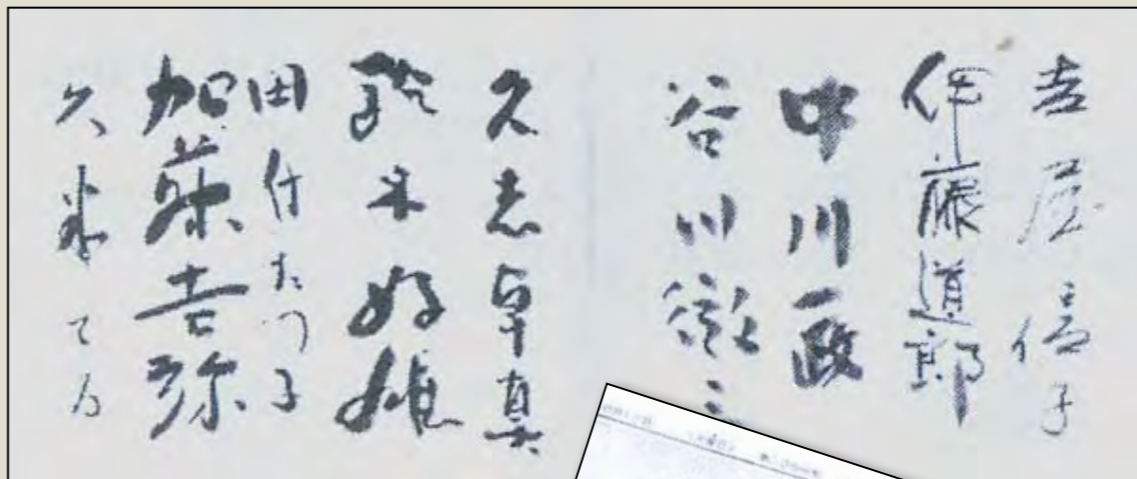 吉屋信子
伊藤道郎
中川一政
谷川徹三
久志卓真
木好
田付たつ子
加藤吉弥
久米